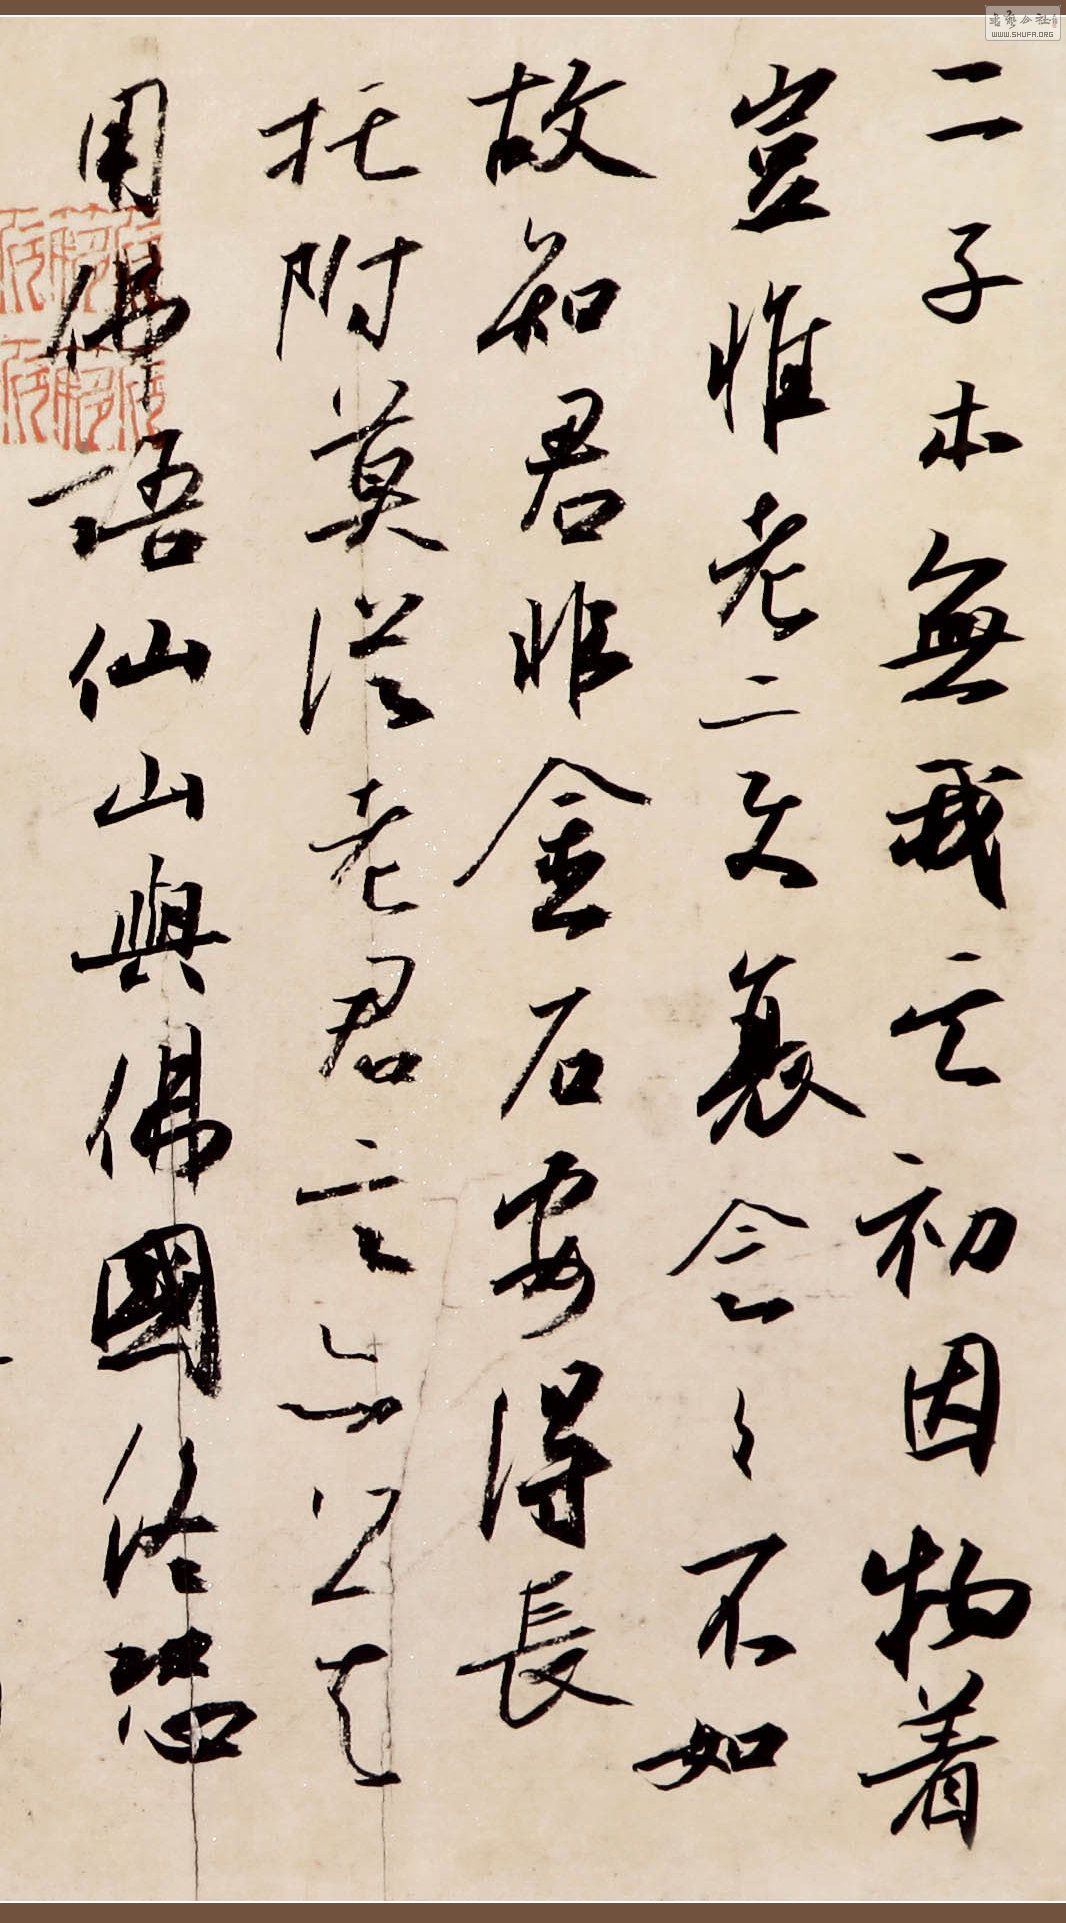 二子本無我其初因物着
豈惟老變衰念々不如
故知君非金石安得長
托附莫從老君言亦莫
用佛語仙山與佛國終恐
書藝公社
WWW.SHUFA.ORG